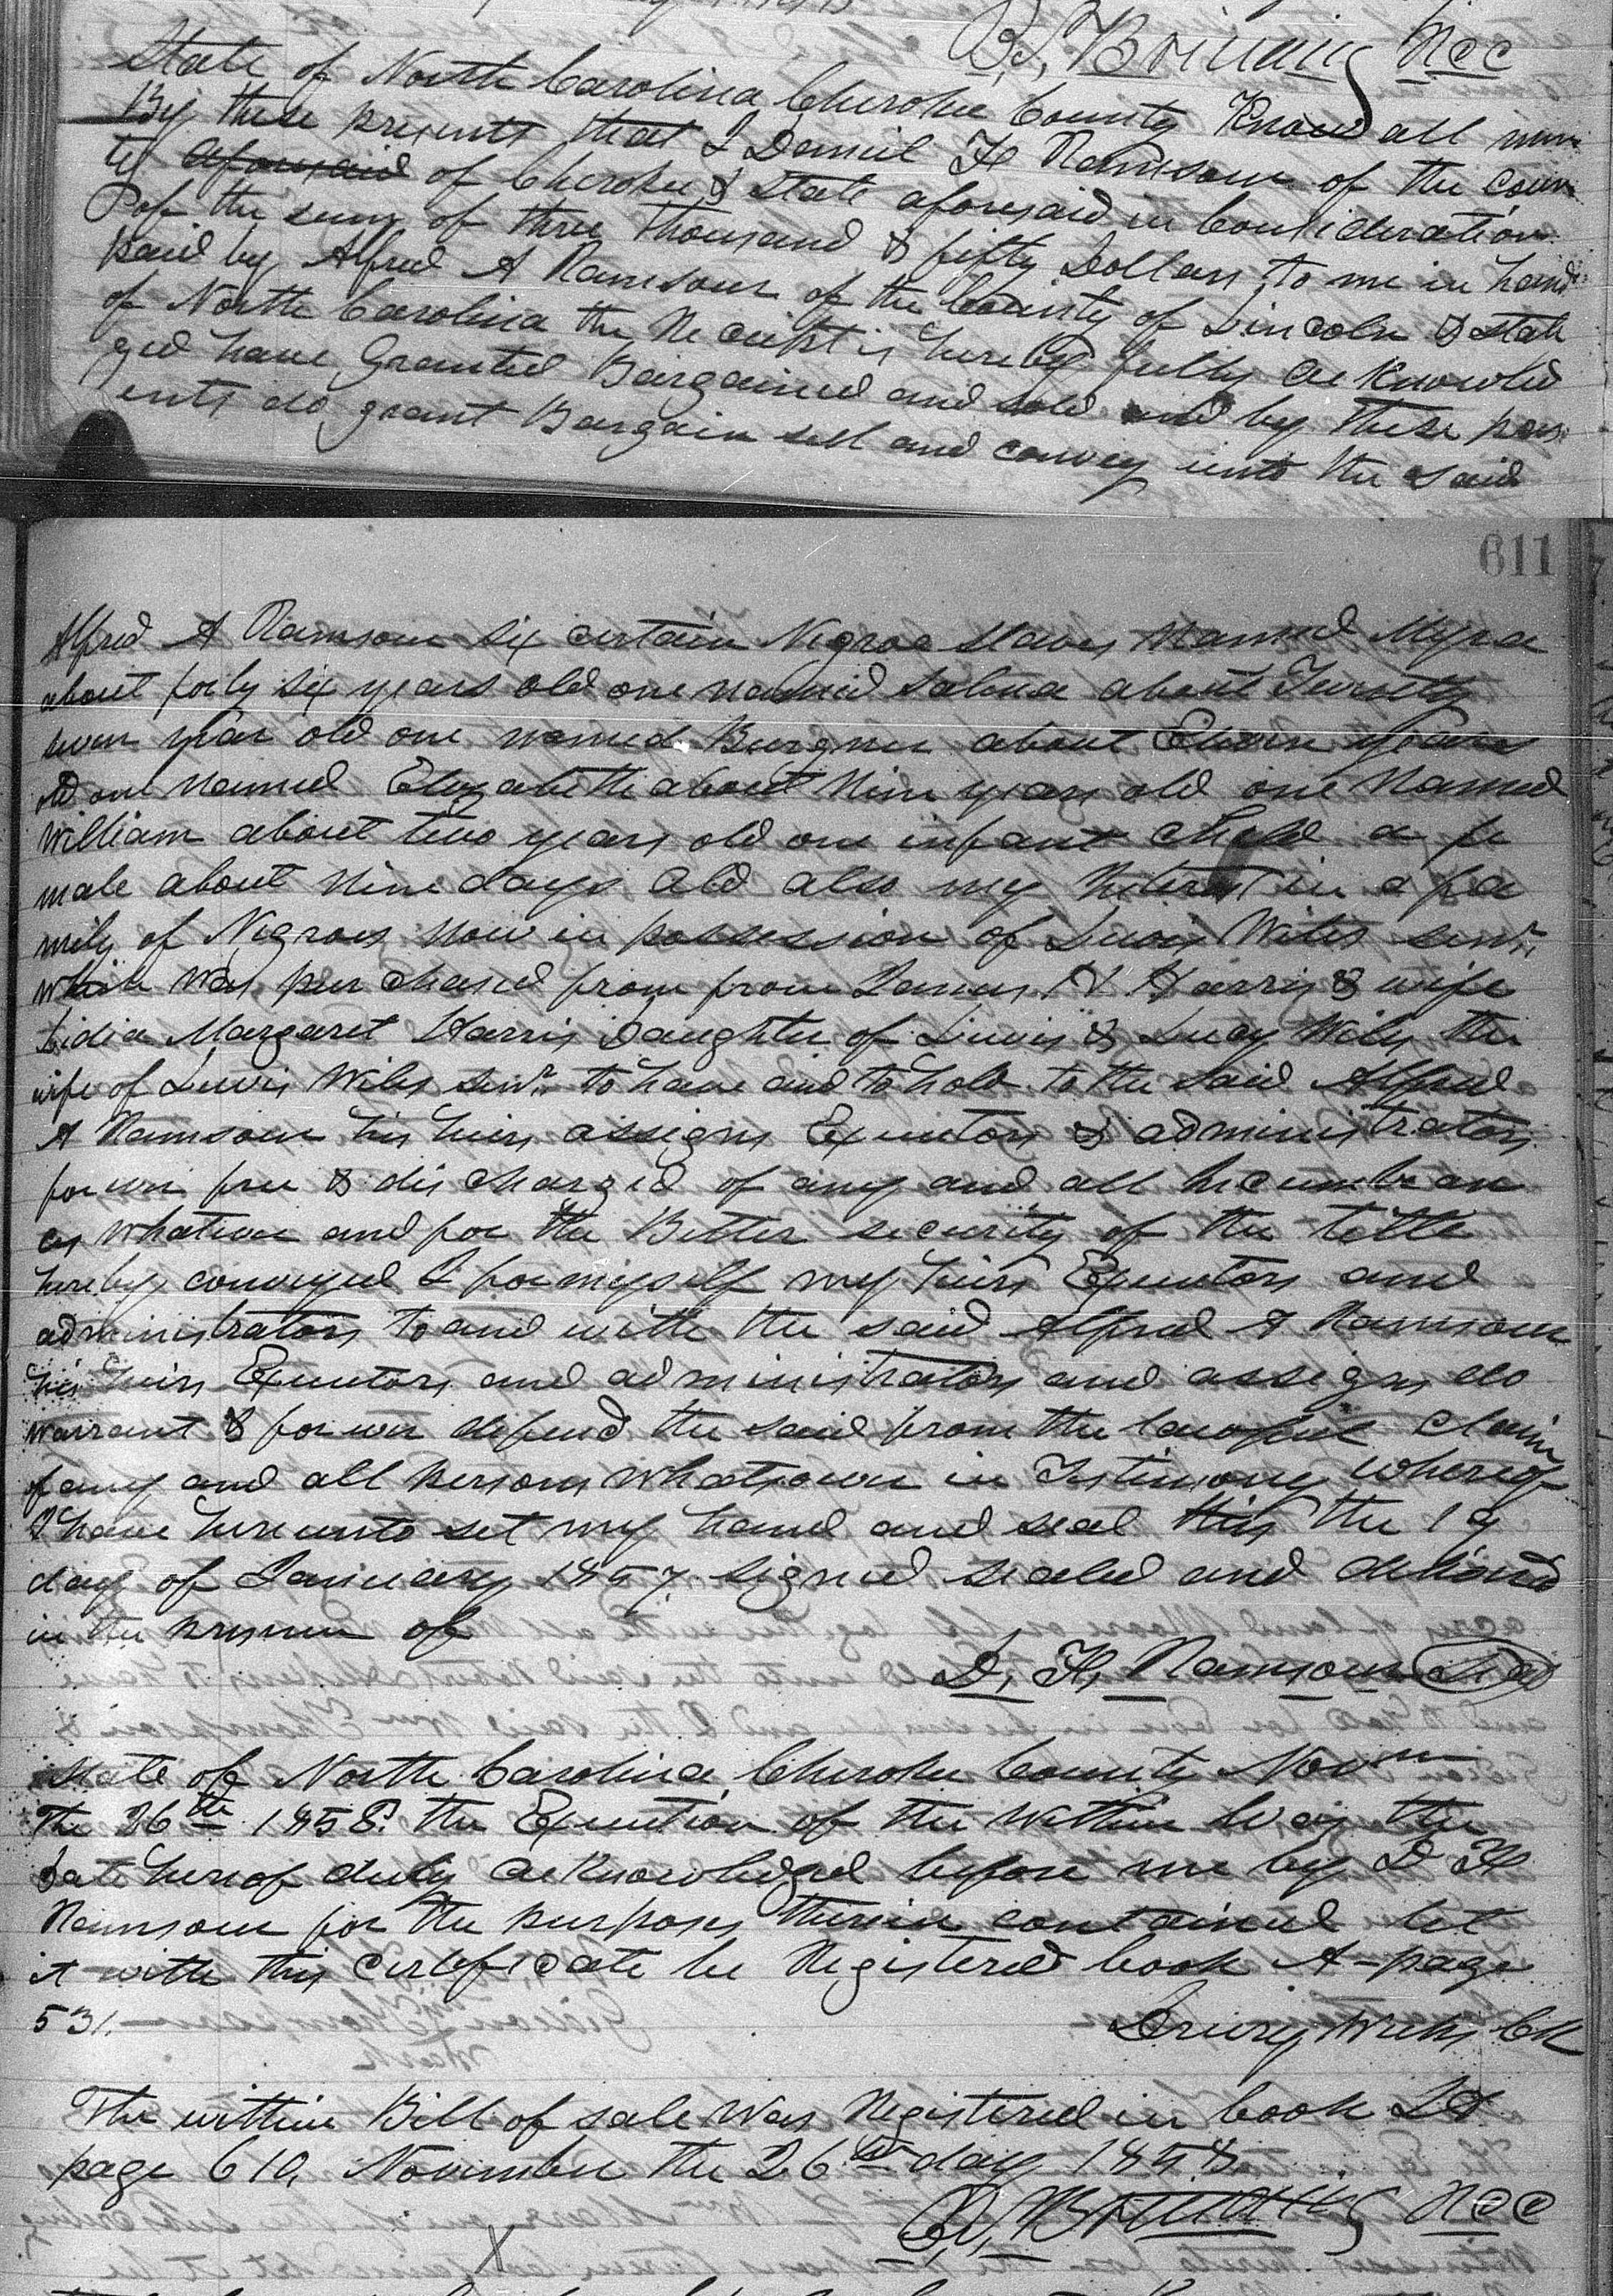 B. S. Brittain RCC
State of North Carolina Cherokee County Know all men
By these presents that I Daniel F Ramsour of the Coun
ty aforesaid of Cherokee & State aforesaid in Consideration
of the sum of three thousand & fifty Dollars to me in hand
paid by Alfred A Ramsour of the County of Lincoln & State
of North Carolina the Receipt is hereby fully acknowled
ged have Granted Bargained and sold and by these pres
ents do grant Bargain sell and convey unto the said
611
Alfred A Ramsour six certain Negroe slaves Named Myra
about forty six years old one named Salina about Twenty
seven year old one named about Eleven years
old one Named Elizabeth about Nine years old one Named
William about two years old one infant Child a fe
male about Nine days old also my Interest in a fa
mily of Negroes now in possession of Lewis Wiles senr
which was purchased from from James N Harris & wife
Lidia Margaret Harris Daughter of Lewis & Lucy Wiles the
wife of Lewis Wiles senr to have and to hold to the said Alfred
A Ramsour his heirs assigns Executors & administrators
forever free & discharged of any and all Incumbran
ces whatever and for the Better security of the tittle
hereby conveyed I for myself my heirs Executors and
administrators to and with the said Alfred A Ramsour
his heirs Executors and administrators and assigns do
warrant & forever defend the said from the lawful claim
of any and all persons whatsoever in Testimony whereof
I have hereunto set my hand and seal this the 19
day of January 1857. signed sealed and delivered
in the presence of
D. F. Ramsour Seal
State of North Carolina Cherokee County
The 26th 1858. the Execution of the within was the
date hereof duly acknowledged before me by D F
Ramsour for the purposes therein contained let
it with this certificate be Registered book A-page
531.
Drury Weeks Clk
The within Bill of sale was Registered in book
page 610 November the 26th day 1858
B. S. Brittain RCC
X